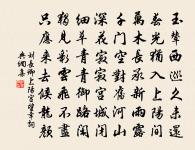 玉輦西巡久未還
春光猶入上陽間
萬木長承新雨露
千門空對舊河山
深花寂寂宮城閉
細草青青御路閑
獨見彩雲飛不盡
只應來去候龍顏
劉長卿上陽宮望幸詞